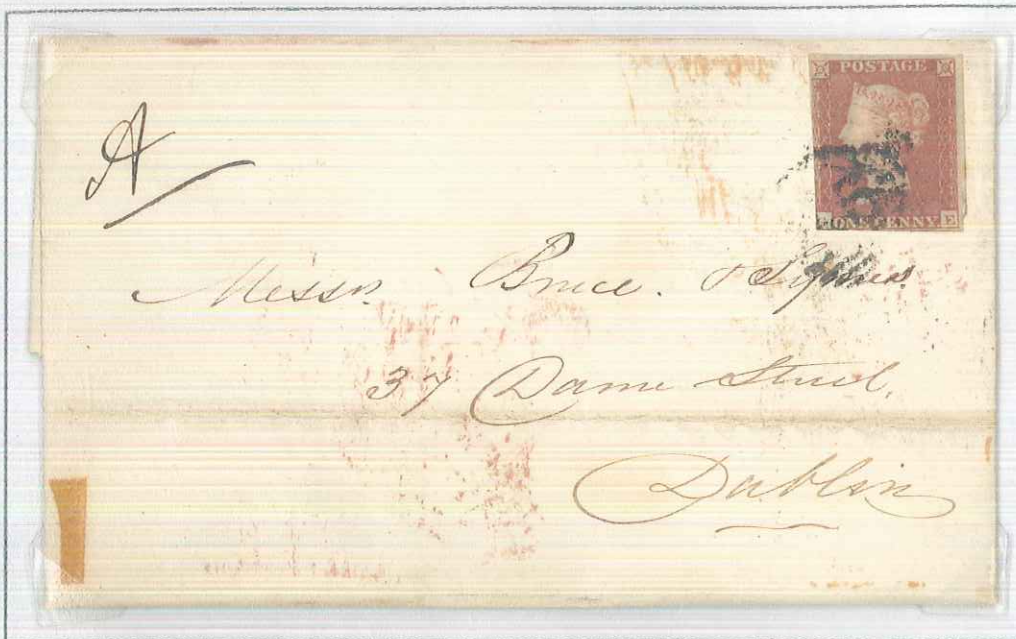 POSTAGE
ONE PENNY E
A
Messrs. Bruce. &
37 Dame Street,
Dublin